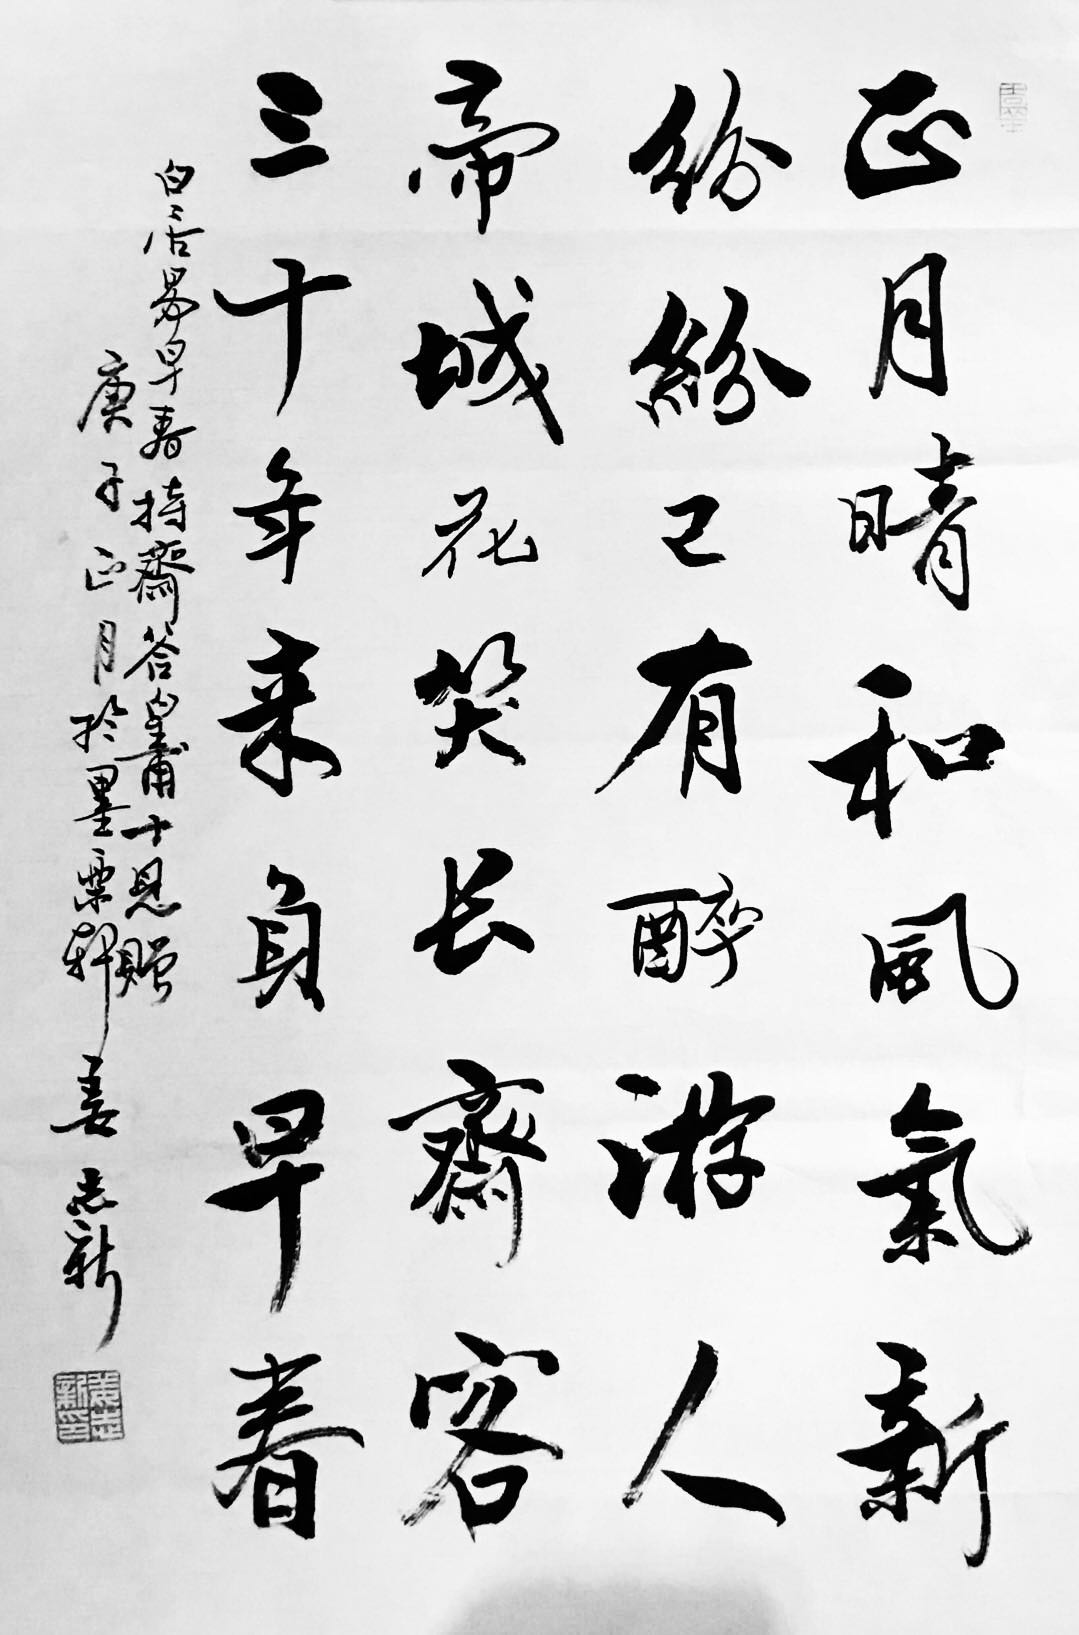 正月晴和风氣新
纷纷已有醉游人
帝城花笑长齋客
三十年来負早春
白居易早春持齋答皇甫十見贈
庚子正月於墨粟轩 姜志新
姜志新印